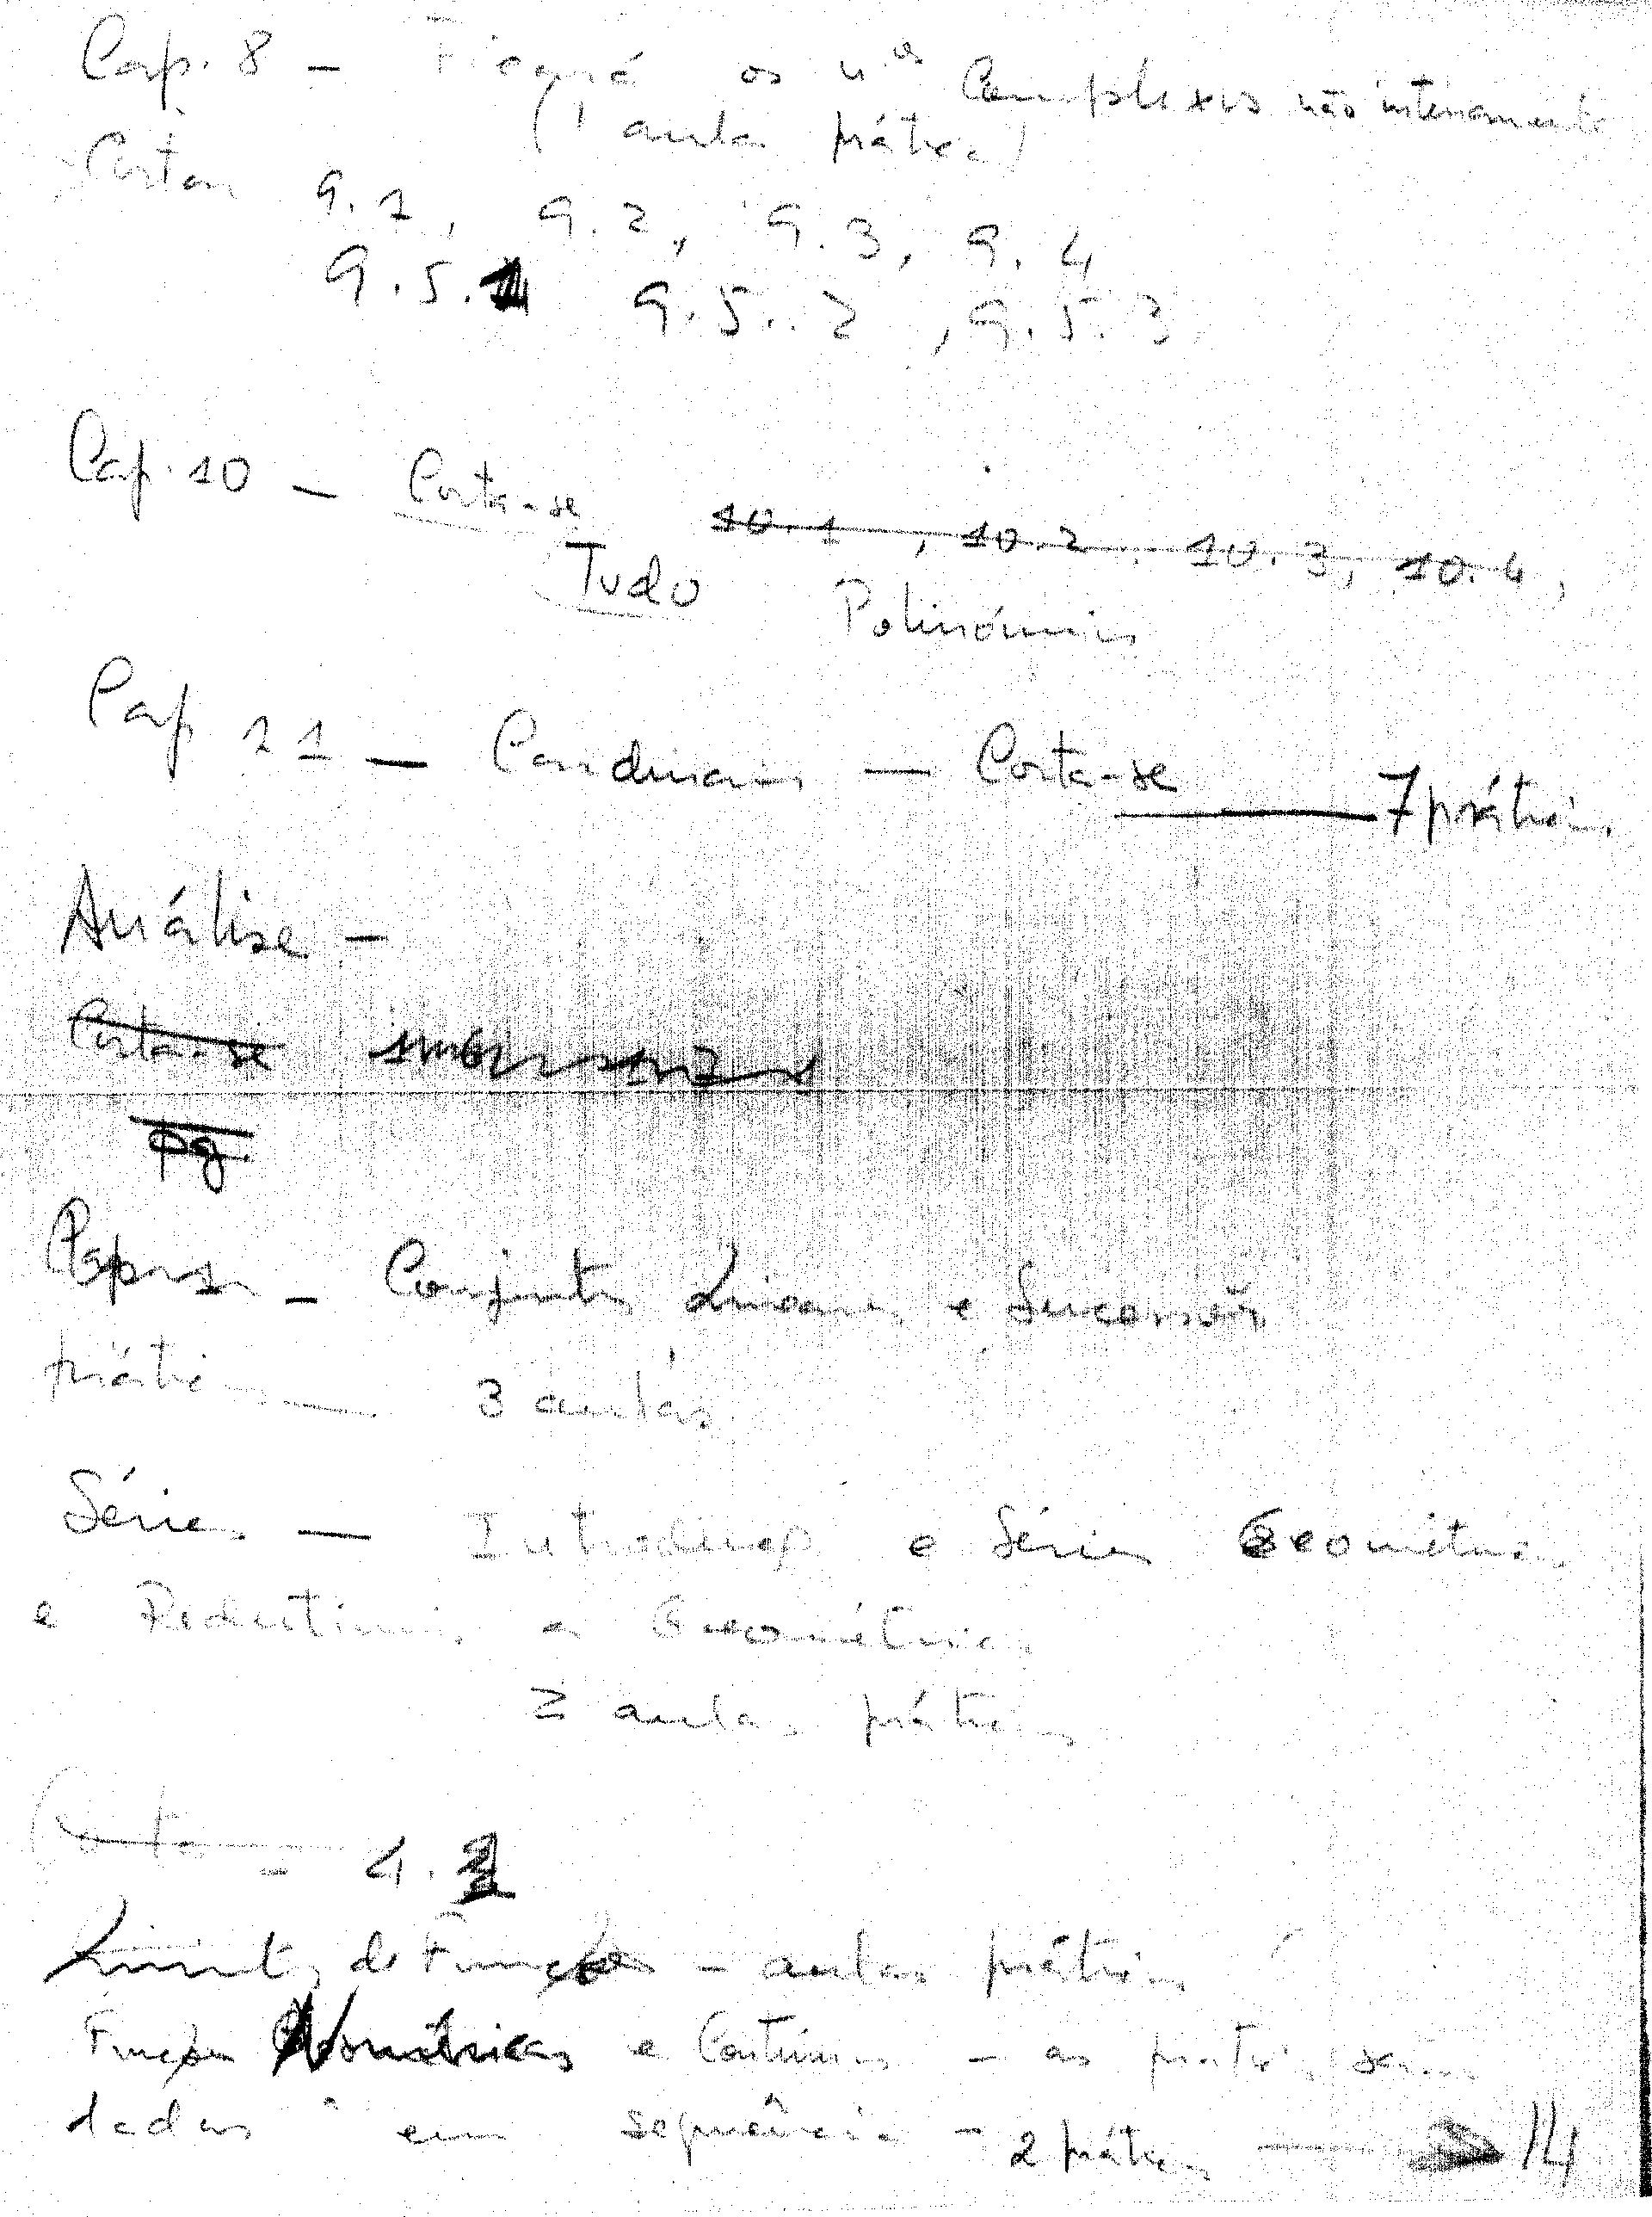 Cap. 8 — Ficará os n.os Complexos não inteiramente
(1 aula prática)
Cortar 9.1, 9.2, 9.3, 9.4
9.5.1 9.5.2, 9.5.3
Cap. 10 — Corta-se 10.1, 10.2, 10.3, 10.4,
Tudo Polinómios
Cap 11 — Cardinais — Corta-se
7 práticas
Análise —
Corta-se
pg.
Cap 1 — Conjuntos Lineares e Sucessões
práticas — 3 aulas
Séries — Introdução e Séries Geométricas
e Redutíveis a Geométricas
2 aulas práticas
Corta - 4.
Limites de Funções - aulas práticas 1
Funções e Contínuas - as práticas serão
dadas em sequência - 2 práticas → 14